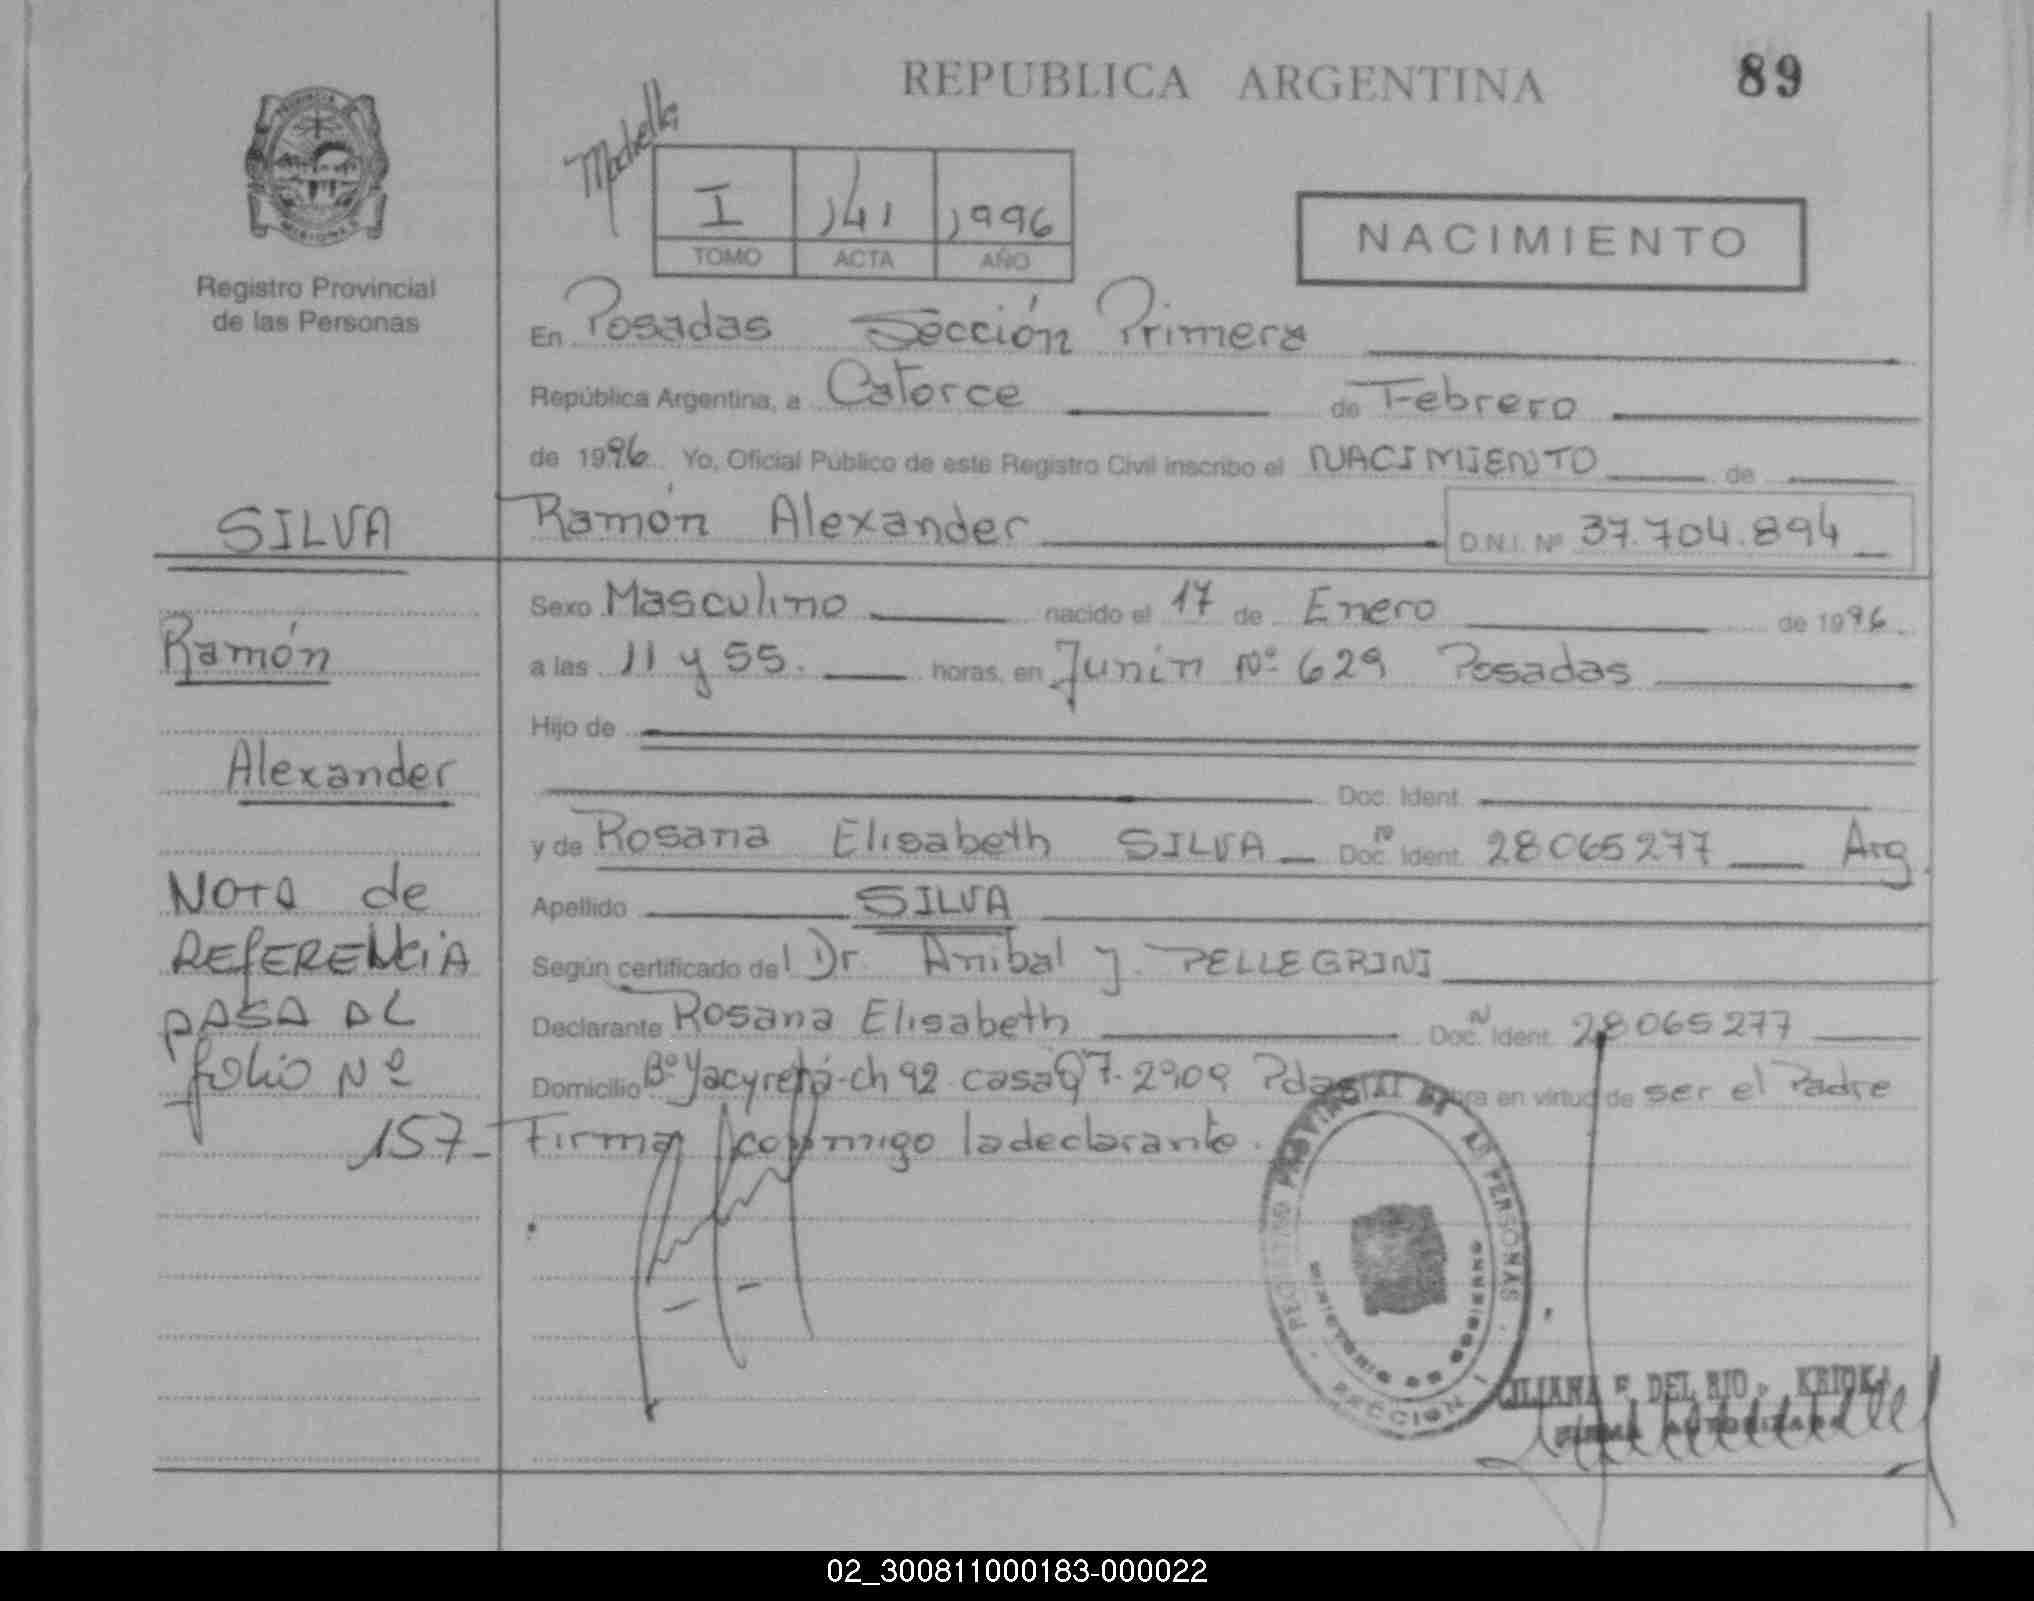 REPUBLICA ARGENTINA
89
PROVINCIA DE
MISIONES
Registro Provincial
de las Personas
I 141 1996
TOMO ACTA AÑO
NACIMIENTO
En Posadas Sección Primera
República Argentina, a Catorce de Febrero
de 1996 Yo, Oficial Público de este Registro Civil inscribo el NACIMIENTO de
SILVA
Ramón Alexander D.N.I. Nº 37.704.894
Sexo Masculino nacido el 17 de Enero de 1996
Ramón
a las 11 y 55. horas, en Junín Nº 629 Posadas
Hijo de
Alexander
Doc. Ident.
y de Rosana Elisabeth SILVA Doc. N Ident. 28065277 Arg.
NOTA de
Apellido SILVA
REFERENCIA
Según certificado del Dr. Anibal J. PELLEGRINI
PASA AL
Declarante Rosana Elisabeth Doc. N Ident. 28065277
folio Nº
Domicilio Bº Yacyretá-ch 92 casa 7-2909 Pdas en virtud de ser el Padre
157-
Firma conmigo la declarante.
REGISTRO PROVINCIAL DE LAS PERSONAS
MINISTERIO DE GOBIERNO
SECCION I
LILIANA F. DEL RIO
02_300811000183-000022